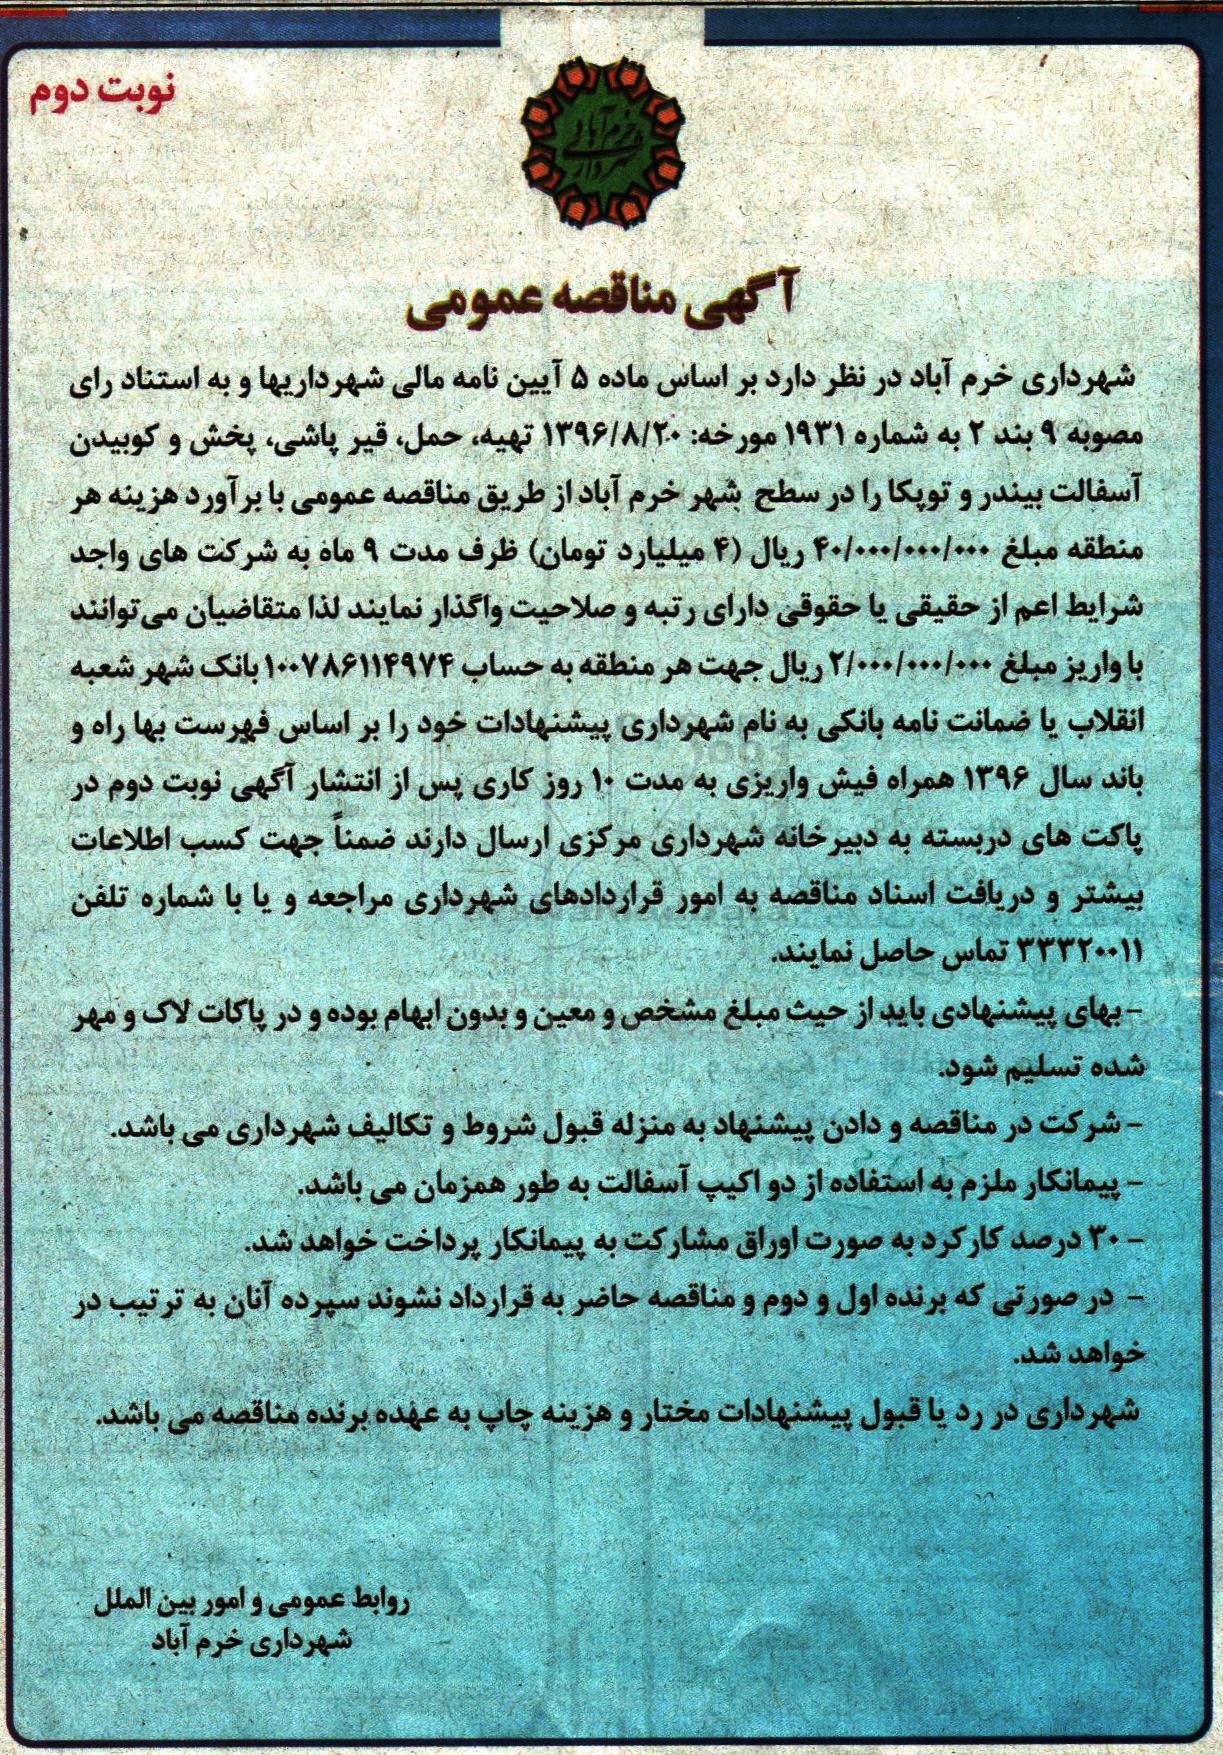 نوبت دوم
شهرداری خرم آباد
آگهی مناقصه عمومی
شهرداری خرم آباد در نظر دارد بر اساس ماده ۵ آیین نامه مالی شهرداریها و به استناد رای
مصوبه ۹ بند ۲ به شماره ۱۹۳۱ مورخه: ۱۳۹۶/۸/۲۰ تهیه، حمل، قیر پاشی، پخش و کوبیدن
آسفالت بیندر و توپکا را در سطح شهر خرم آباد از طریق مناقصه عمومی با برآورد هزینه هر
منطقه مبلغ ۴۰/۰۰۰/۰۰۰/۰۰۰ ریال (۴ میلیارد تومان) ظرف مدت ۹ ماه به شرکت های واجد
شرایط اعم از حقیقی یا حقوقی دارای رتبه و صلاحیت واگذار نمایند لذا متقاضیان می‌توانند
با واریز مبلغ ۲/۰۰۰/۰۰۰/۰۰۰ ریال جهت هر منطقه به حساب ۱۰۰۷۸۶۱۱۴۹۷۴ بانک شهر شعبه
انقلاب یا ضمانت نامه بانکی به نام شهرداری پیشنهادات خود را بر اساس فهرست بها راه و
باند سال ۱۳۹۶ همراه فیش واریزی به مدت ۱۰ روز کاری پس از انتشار آگهی نوبت دوم در
پاکت های دربسته به دبیرخانه شهرداری مرکزی ارسال دارند ضمناً جهت کسب اطلاعات
بیشتر و دریافت اسناد مناقصه به امور قراردادهای شهرداری مراجعه و یا با شماره تلفن
۳۳۳۲۰۰۱۱ تماس حاصل نمایند.
- بهای پیشنهادی باید از حیث مبلغ مشخص و معین و بدون ابهام بوده و در پاکات لاک و مهر
شده تسلیم شود.
- شرکت در مناقصه و دادن پیشنهاد به منزله قبول شروط و تکالیف شهرداری می باشد.
- پیمانکار ملزم به استفاده از دو اکیپ آسفالت به طور همزمان می باشد.
- ۳۰ درصد کارکرد به صورت اوراق مشارکت به پیمانکار پرداخت خواهد شد.
- در صورتی که برنده اول و دوم و مناقصه حاضر به قرارداد نشوند سپرده آنان به ترتیب در
خواهد شد.
شهرداری در رد یا قبول پیشنهادات مختار و هزینه چاپ به عهده برنده مناقصه می باشد.
روابط عمومی و امور بین الملل
شهرداری خرم آباد